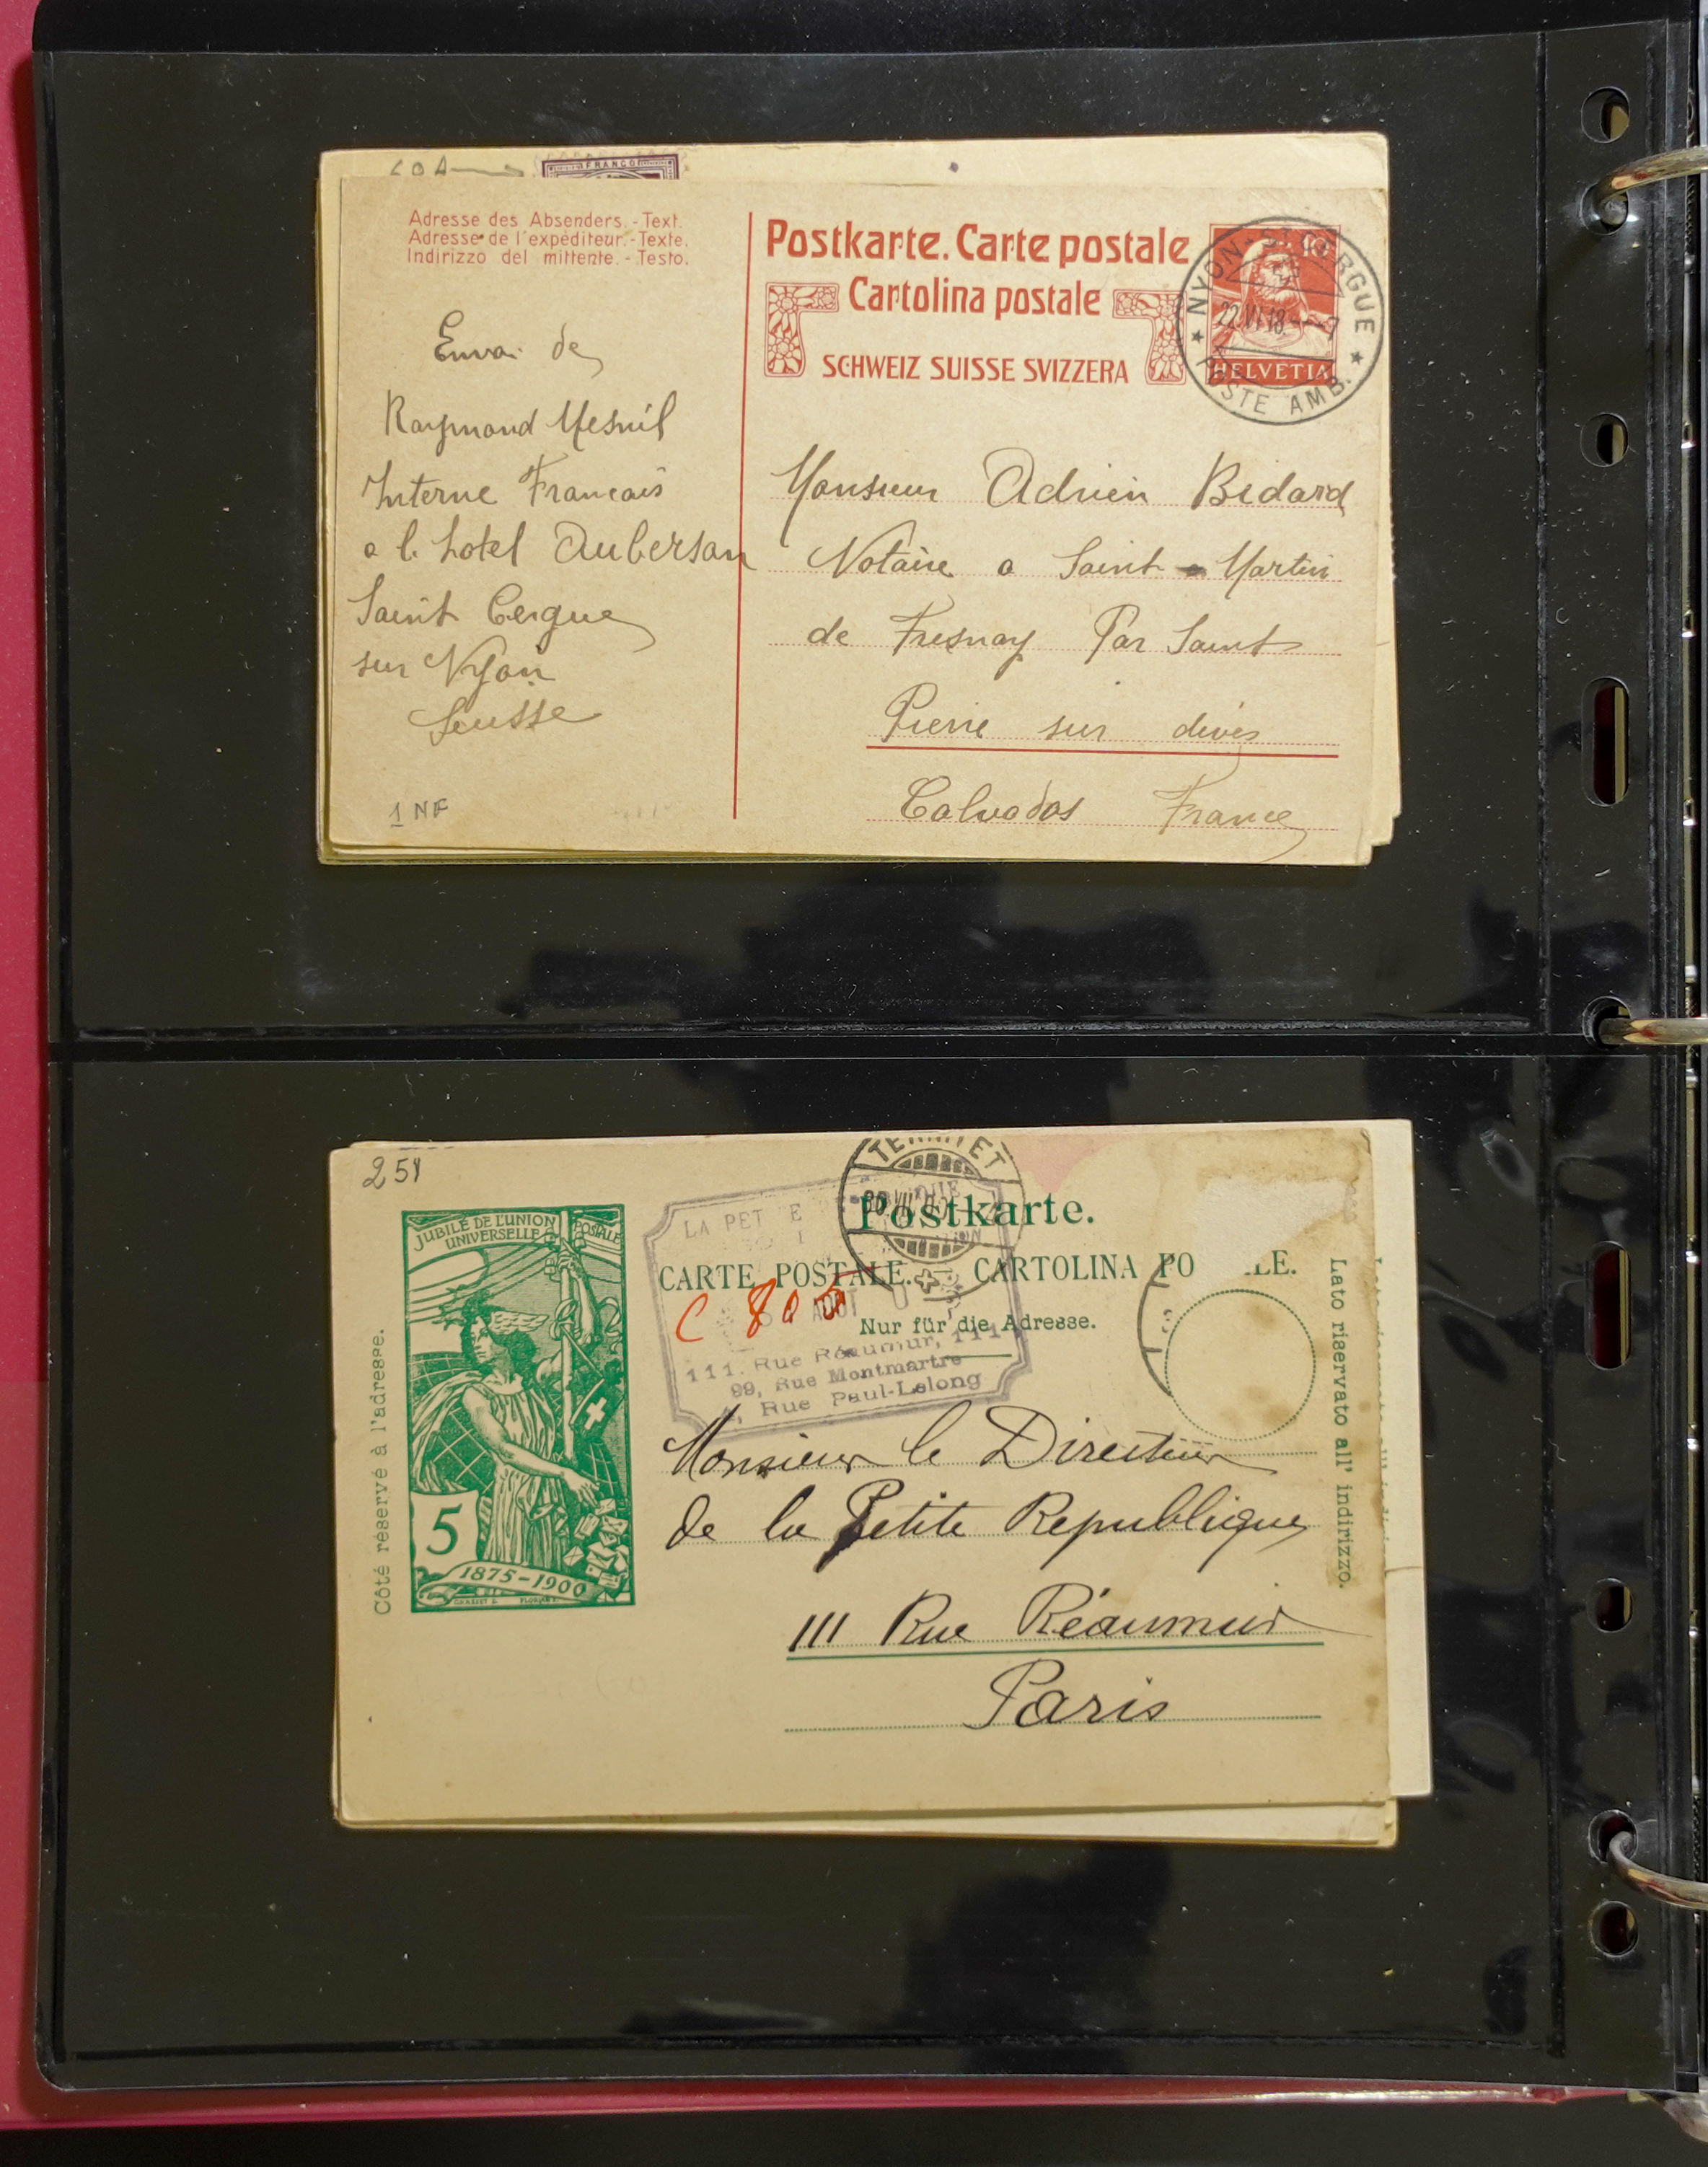 FRANCO
Adresse des Absenders. - Text.
Adresse de l'expéditeur. - Texte.
Indirizzo del mittente. - Testo.
Postkarte. Carte postale
Cartolina postale
SCHWEIZ SUISSE SVIZZERA
10
HELVETIA
NYON - ST CERGUE
22.VI.18 - 9
POSTE AMB.
Envoi de
Raymond Mesnil
Interne Francais
a l. hotel Auberson
Saint Cergue
sur Nyon
Suisse
1 NF
Monsieur Adrien Bidard
Notaire a Saint - Martin
de Fresnay Par Saint
Pierre sur dives
Calvados France
251
JUBILÉ DE L'UNION
POSTALE
UNIVERSELLE
5
1875-1900
Côté réservé à l'adresse.
TERRITET
Postkarte.
CARTE POSTALE. CARTOLINA PO LE.
Nur für die Adresse.
LA PET E
C 805
AOUT
111. Rue Réaumur, 111
99, Rue Montmartre
Rue Paul-Lelong
Lato riservato all' indirizzo.
Monsieur le Directeur
de la Petite Republique
111 Rue Réaumur
Paris